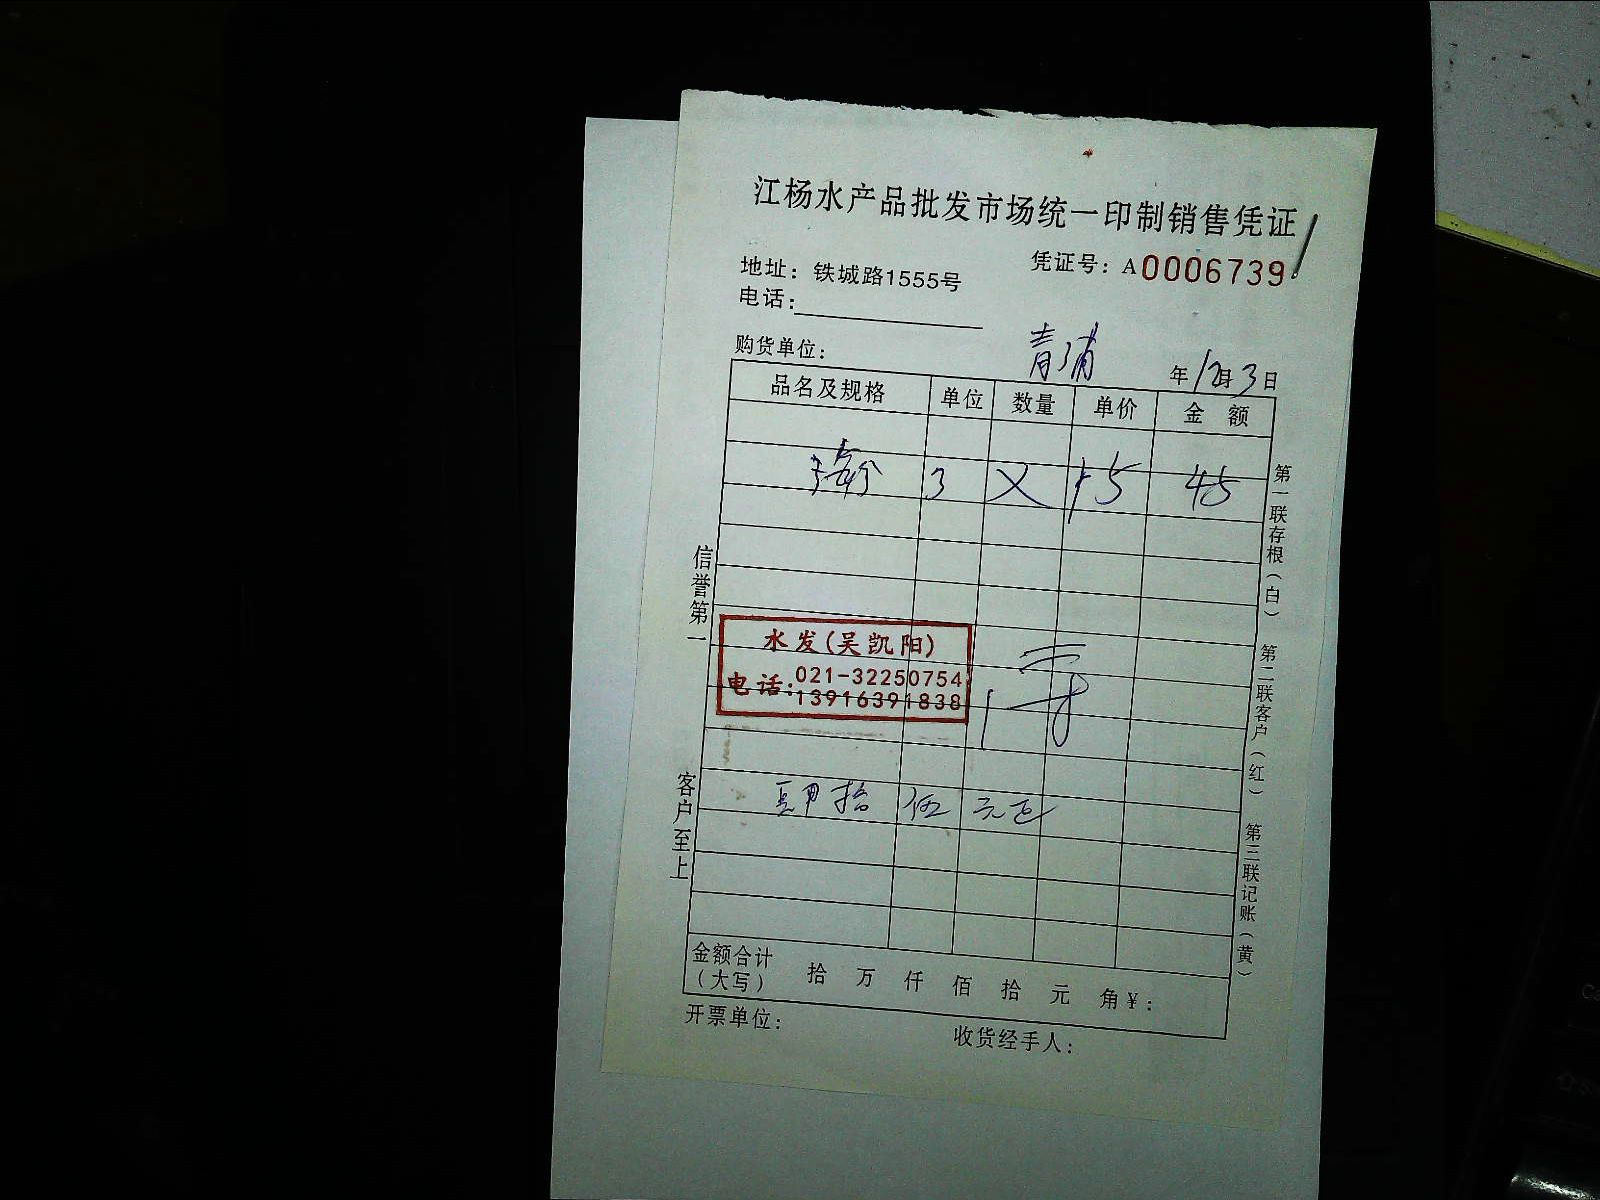 江杨水产品批发市场统一印制销售凭证
凭证号：A0006739
地址：铁城路1555号
电话：
青浦
购货单位：
年12月3日
品名及规格 单位 数量 单价 金 额
3 X 15 45
水发(吴凯阳)
电话:021-32250754
13916391838
肆拾伍元正
金额合计
（大写） 拾 万 仟 佰 拾 元 角¥：
开票单位：
收货经手人：
信誉第一
客户至上
第一联存根（白） 第二联客户（红） 第三联记账（黄）